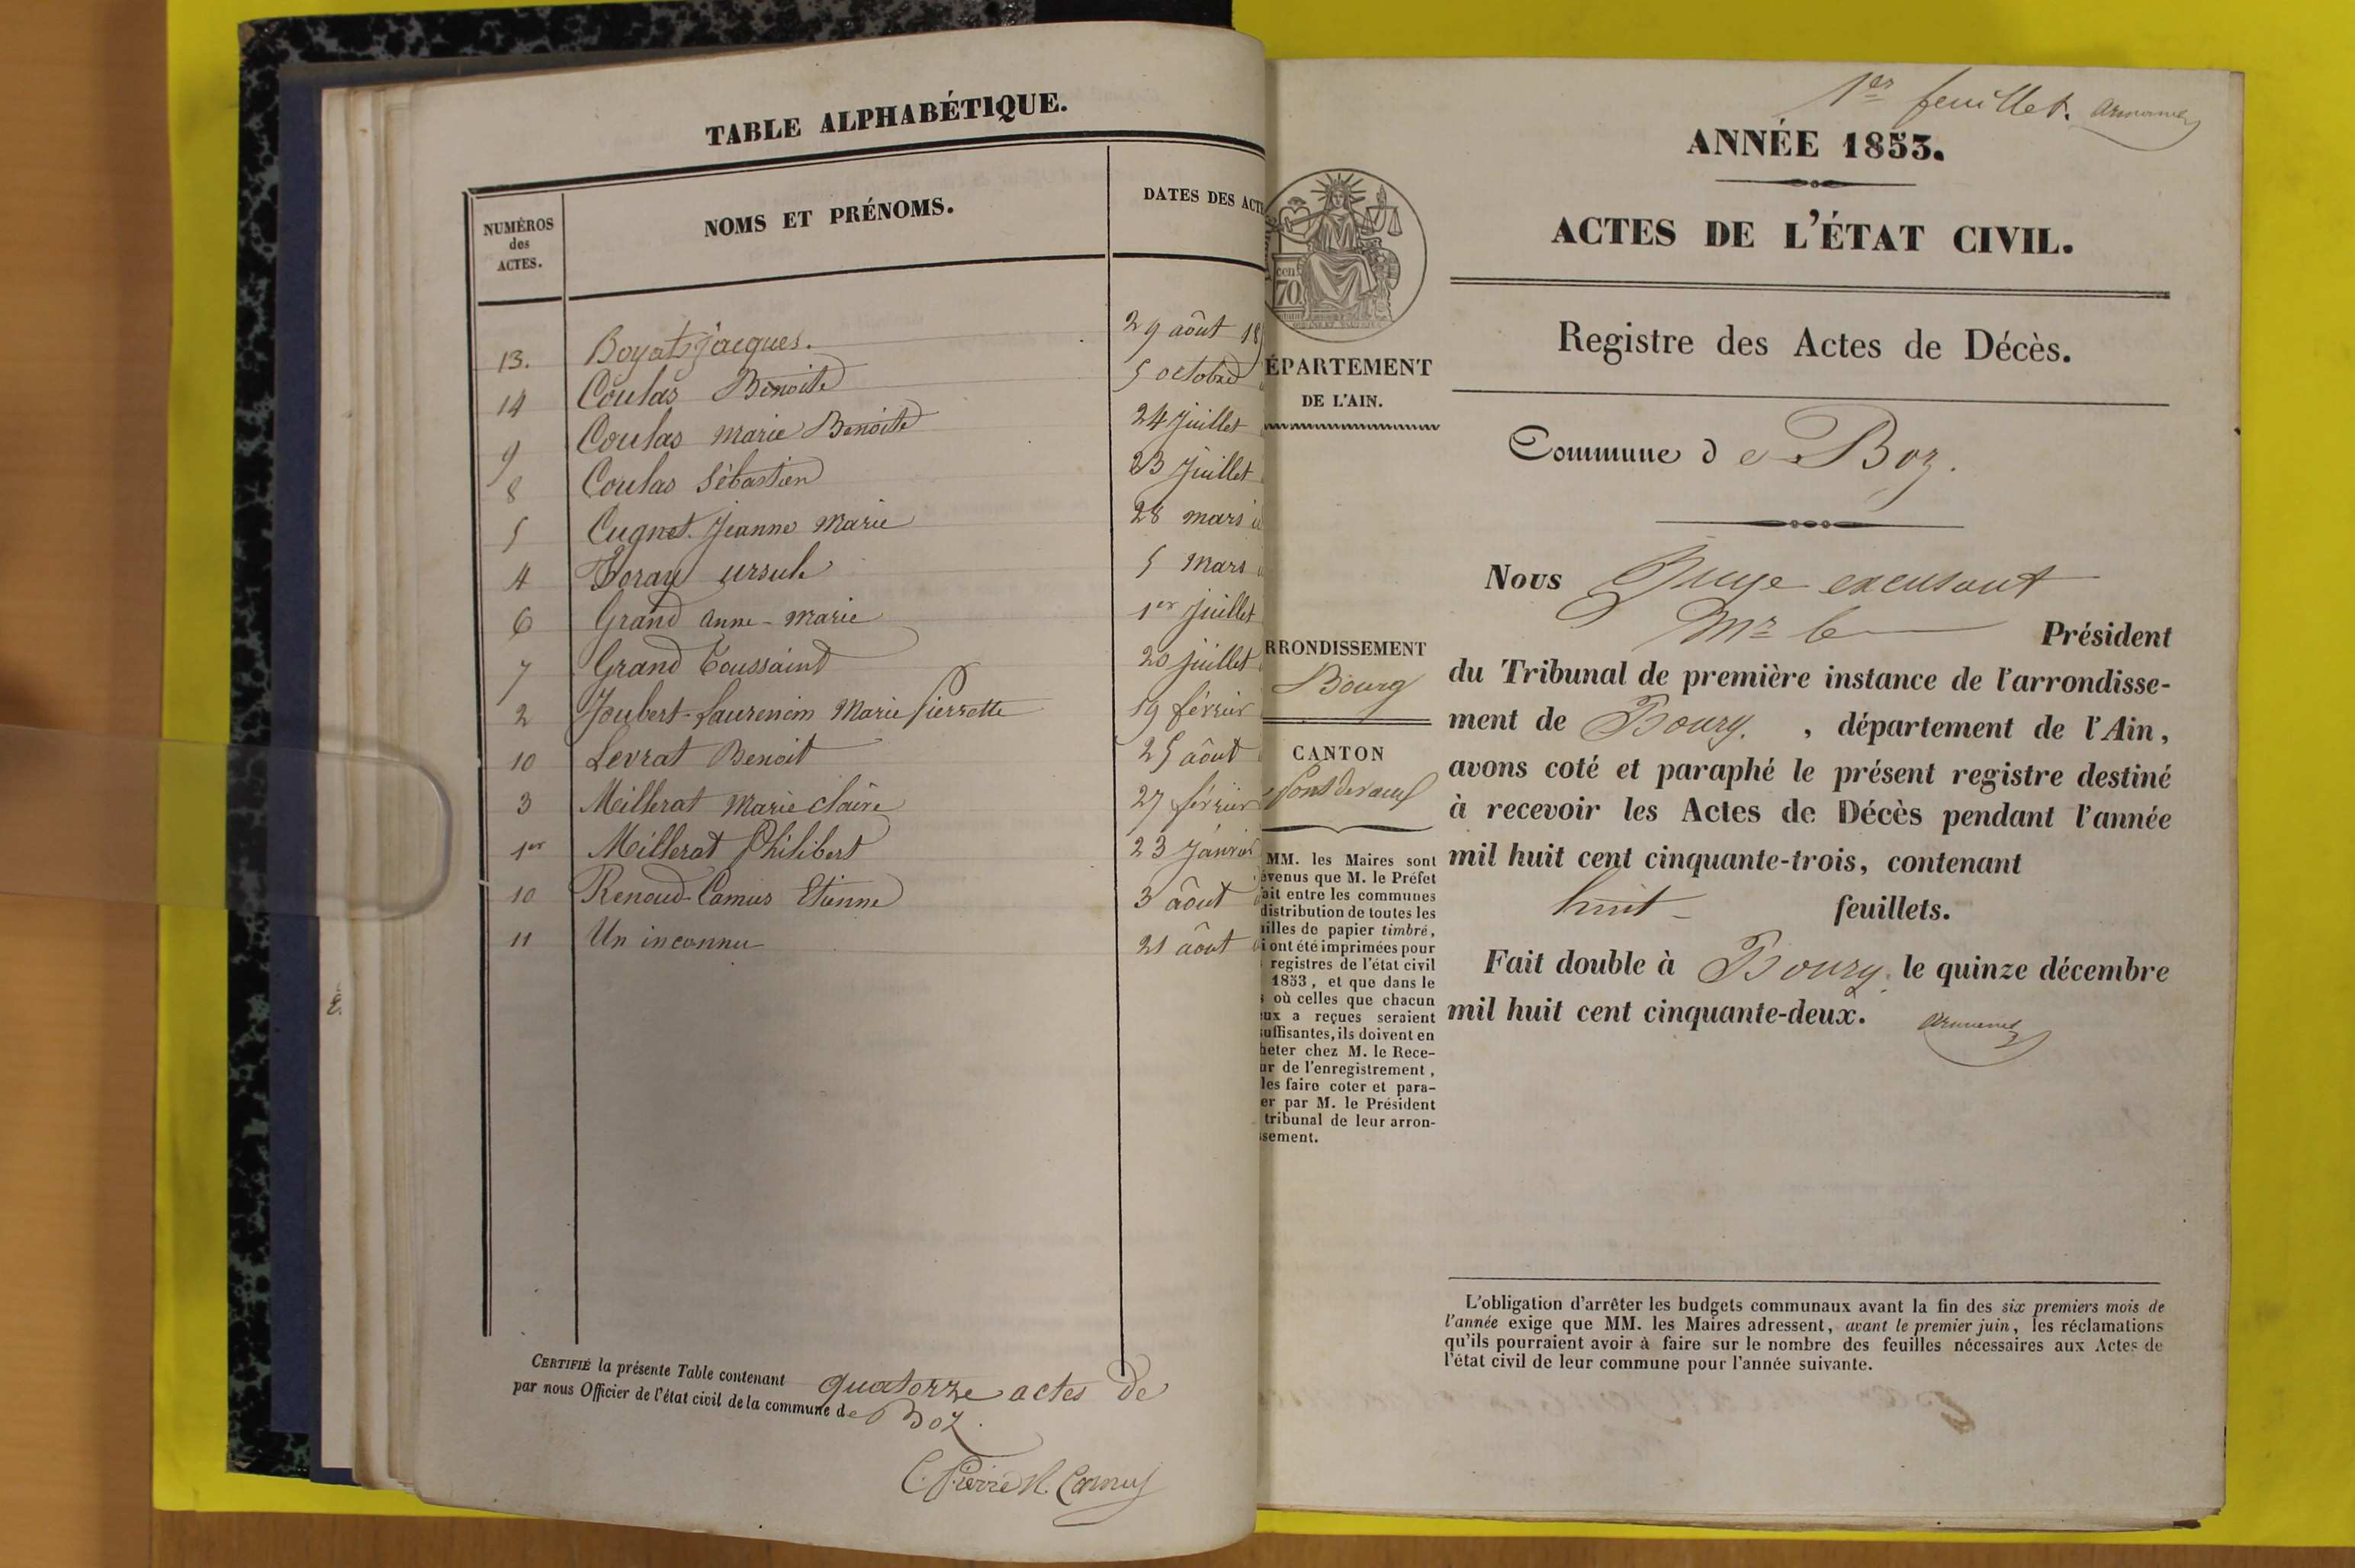 TABLE ALPHABÉTIQUE.
NUMÉROS
des
ACTES.
NOMS ET PRÉNOMS.
DATES DES ACTE
13. Boyat Jacques. 29 aôut 18
14 Coulas Benoite 5 octobre
9 Coulas Marie Benoite 24 Juillet
8 Coulas Sébastien 23 Juillet
5 Cugnet Jeanne Marie 28 mars
4 Foray ursule 5 Mars
6 Grand anne-marie 1er juillet
7 Grand Toussaint 20 juillet
2 Joubert-Laurencin Marie Pierrette 19 février
10 Levrat Benoit 25 aôut
3 Millerat Marie claire 27 février
1er Millerat Philibert 23 Janvier
10 Renoud-Camus Etienne 3 aôut
11 Un inconnu 21 aôut
CERTIFIÉ la présente Table contenant quatorze actes de
par nous Officier de l'état civil de la commune de Boz.
Pierre R. Camus
1er feuillet.
ANNÉE 1853.
ACTES DE L'ÉTAT CIVIL.
Registre des Actes de Décès.
cent
70
ÉPARTEMENT
DE L'AIN.
RRONDISSEMENT
Bourg
CANTON
Pont de vaux
MM. les Maires sont
évenus que M. le Préfet
ait entre les communes
distribution de toutes les
illes de papier timbré,
i ont été imprimées pour
registres de l'état civil
1853, et que dans le
s où celles que chacun
eux a reçues seraient
suffisantes, ils doivent en
heter chez M. le Rece-
ur de l'enregistrement,
les faire coter et para-
er par M. le Président
tribunal de leur arron-
ssement.
Commune de Boz.
Nous Juge excusant
Mr le Président
du Tribunal de première instance de l'arrondisse-
ment de Bourg. , département de l'Ain,
avons coté et paraphé le présent registre destiné
à recevoir les Actes de Décès pendant l'année
mil huit cent cinquante-trois, contenant
huit feuillets.
Fait double à Bourg, le quinze décembre
mil huit cent cinquante-deux.
L'obligation d'arrêter les budgets communaux avant la fin des six premiers mois de
l'année exige que MM. les Maires adressent, avant le premier juin, les réclamations
qu'ils pourraient avoir à faire sur le nombre des feuilles nécessaires aux Actes de
l'état civil de leur commune pour l'année suivante.